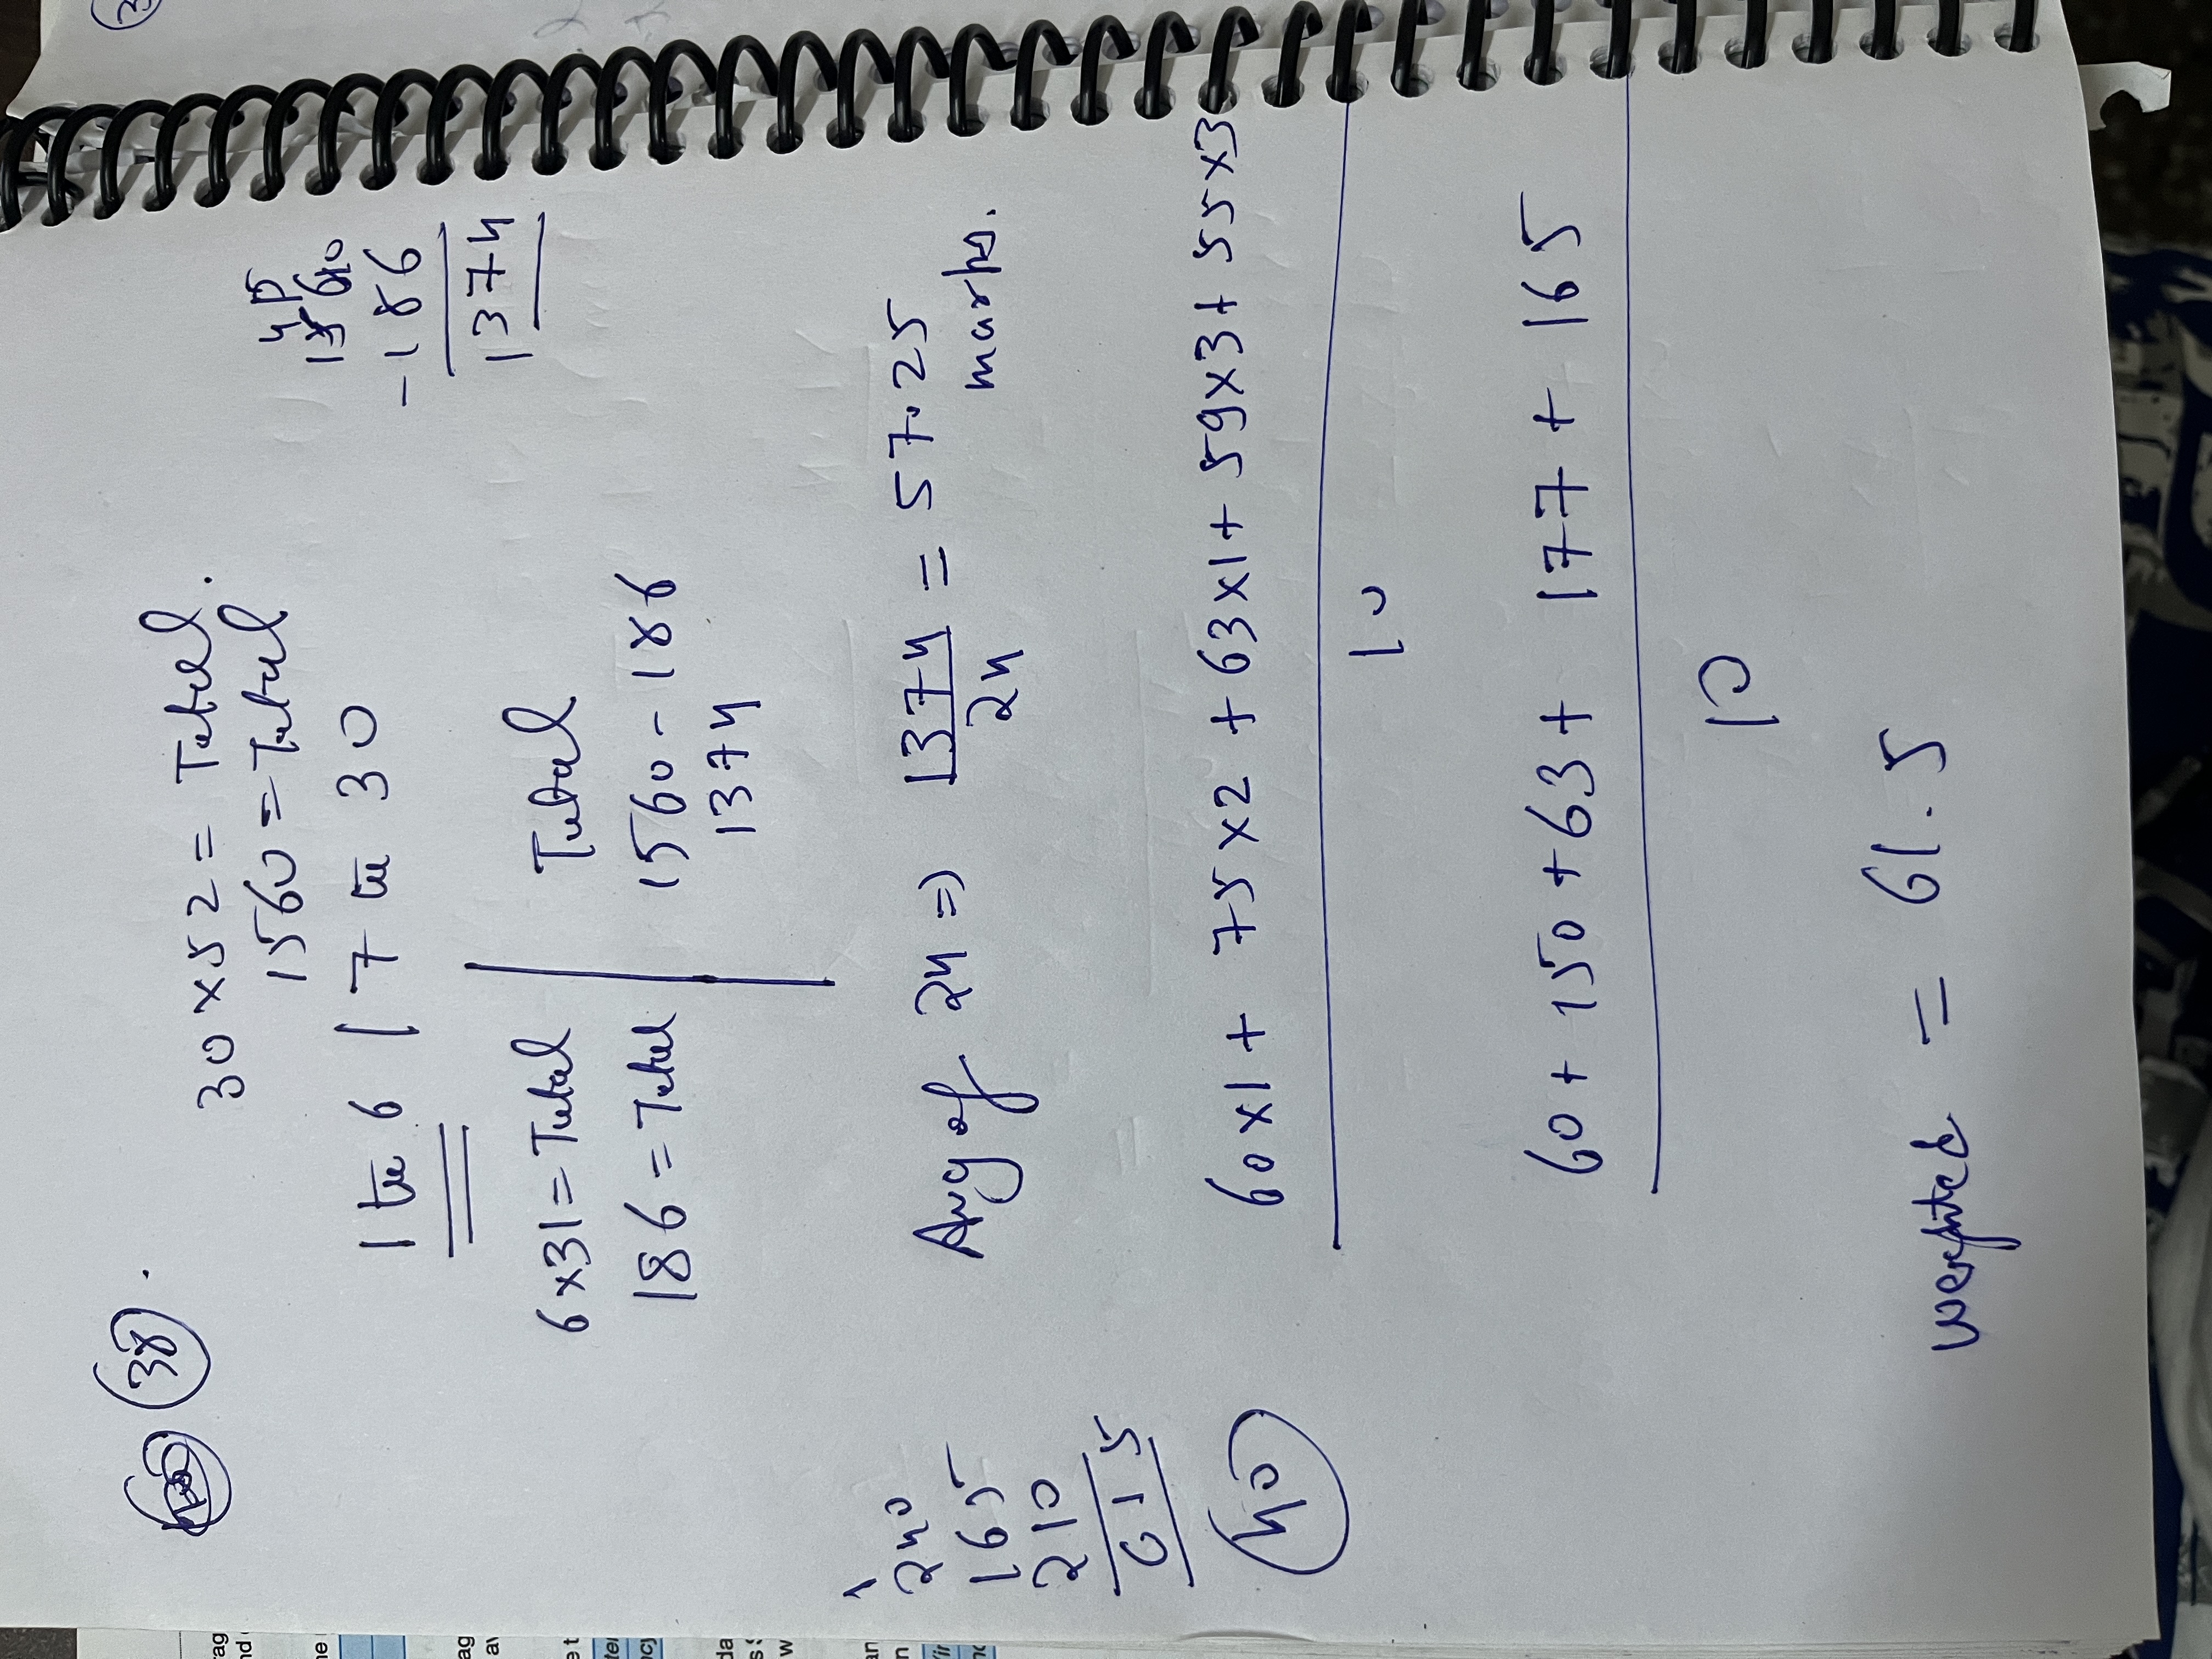 38.
30 x 52 = Total.
1560 = Total
1 to 6 | 7 to 30
6 x 31 = Total
186 = Total
Total
1560 - 186
1374
4 15
15610
- 186
1374
Avg of 24 => 1374 / 24 = 57.25
marks.
1
240
165
210
615
40
60x1 + 75x2 + 63x1 + 59x3 + 55x3
10
60 + 150 + 63 + 177 + 165
10
weighted = 61.5